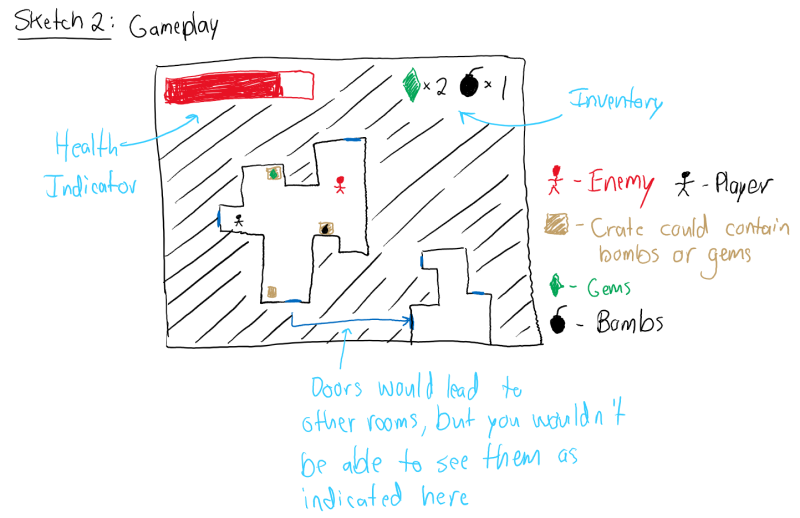 Sketch 2: Gameplay
× 2 × 1
Inventory
Health
Indicator
- Enemy - Player
- Crate could contain
bombs or gems
- Gems
- Bombs
Doors would lead to
other rooms, but you wouldn't
be able to see them as
indicated here